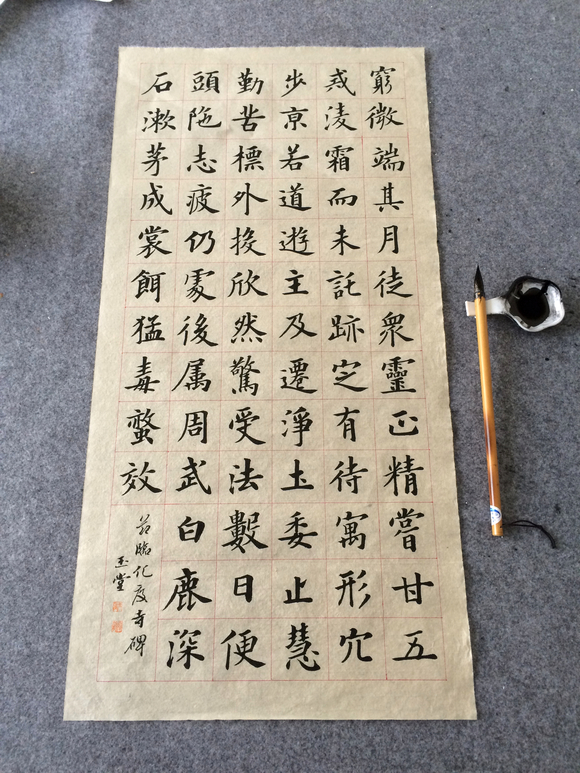 窮微端其月徒衆靈正精嘗甘五
戎淩霜而未託跡定有待寓形穴
步京若道遊主及遷淨土委止慧
勤苦標外挨欣然驚受法數日便
頭陁志疲仍處後属周武白鹿深
石漱茅成裳餌猛毒螫效
節臨化度寺碑
玉堂